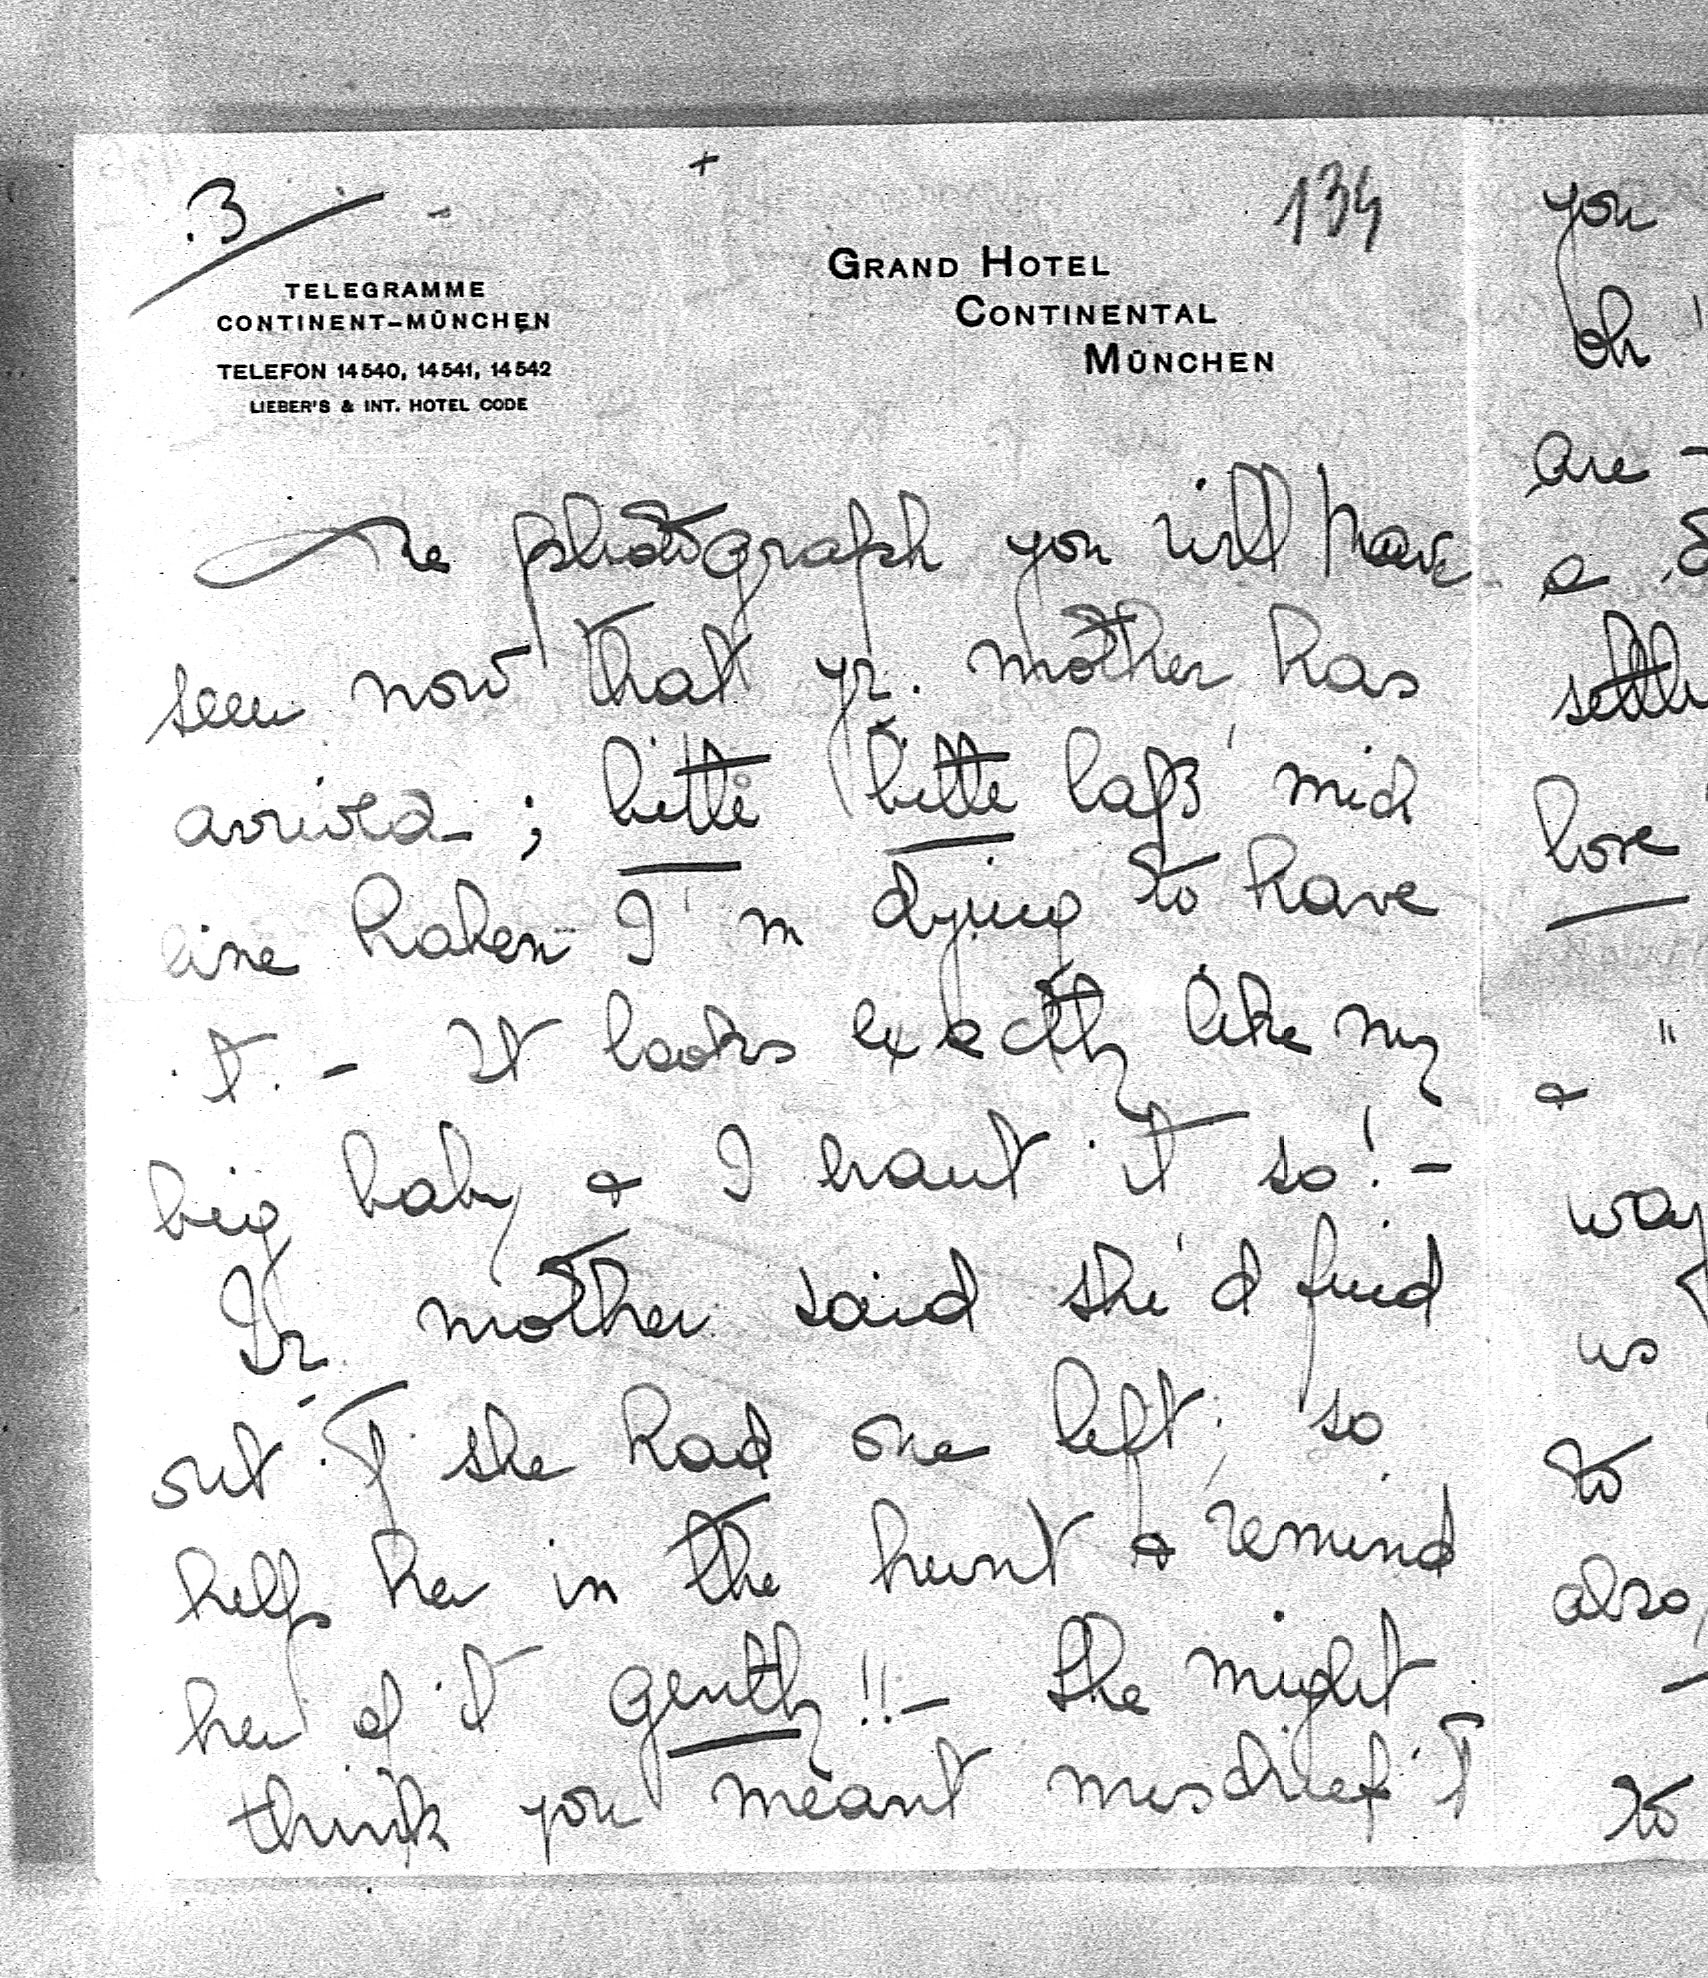 3
134
TELEGRAMME
CONTINENT-MÜNCHEN
TELEFON 14540, 14541, 14542
LIEBER'S & INT. HOTEL CODE
GRAND HOTEL
CONTINENTAL
MÜNCHEN
The photograph you will have
seen now that yr. mother has
arrived - ; bitte bitte laß mich
eine haben I'm dying to have
it. - It looks exactly like my
big baby & I want it so! -
Yr. mother said she'd find
out if she had one left; so
help her in the hunt & remind
her of it gently!! - She might
think you meant mischief if
you
oh
are -
a
settle
love
"
&
way
us
to
also,
to